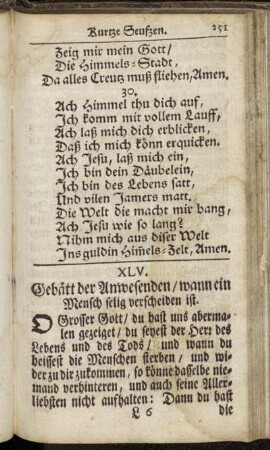 Kurtze Seufzen. 251
Zeig mir mein Gott/
Die Himmels-Stadt,
Da alles Creutz muß fliehen, Amen.
30.
Ach Himmel thu dich auf,
Ich komm mit vollem Lauff,
Ach laß mich dich erblicken,
Daß ich mich könn erquicken.
Ach Jesu, laß mich ein,
Ich bin dein Däubelein,
Ich bin des Lebens satt,
Und vilen Jamers matt.
Die Welt die macht mir bang,
Ach Jesu wie so lang?
Nihm mich aus diser Welt
Ins guldin Him̃els-Zelt, Amen.
XLV.
Gebätt der Anwesenden/wann ein
Mensch selig verscheiden ist.
O Grosser Gott/ du hast uns aberma-
len gezeiget/ du seyest der Herr des
Lebens und des Tods/ und wann du
heissest die Menschen sterben/ und wi-
der zu dir zukommen, so könne dasselbe nie-
mand verhinteren, und auch seine Aller-
liebsten nicht aufhalten: Dann du hast
L 6 die